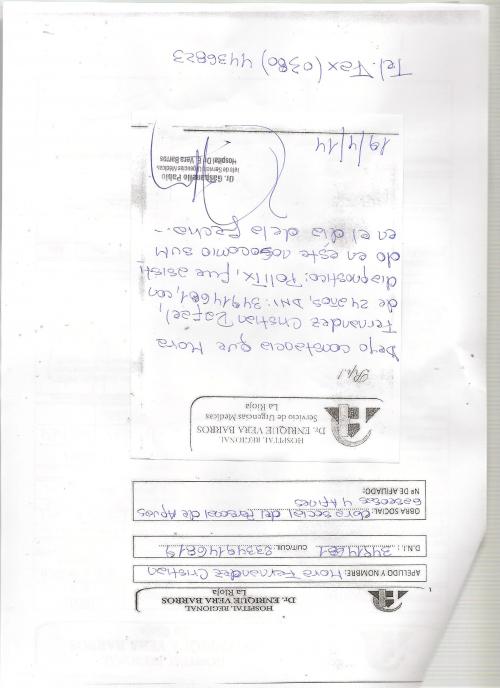 HOSPITAL REGIONAL
Dr. ENRIQUE VERA BARROS
La Rioja
APELLIDO Y NOMBRE: Mora Fernandez Cristian
D.N.I.: 34914681 CUIT/CUIL: 23349146819
OBRA SOCIAL: obra social del Personal de Aguas
Gaseosas y Afines
Nº DE AFILIADO:
HOSPITAL REGIONAL
Dr. ENRIQUE VERA BARROS
Servicio de Urgencias Médicas
La Rioja
Rp.1
Dejo constancia que Mora
Fernandez Cristian Rafael,
de 24 años, DNI: 34914681, con
diagnostico: PoliTx, fue asisti
do en éste nosocomio SUM
en el día de la fecha.-
Dr. Gasparello Pablo
Jefe de Servicio Urgencias Médicas
Hospital Dr. E. Vera Barros
19/4/14
Tel. Fax (0380) 4436823